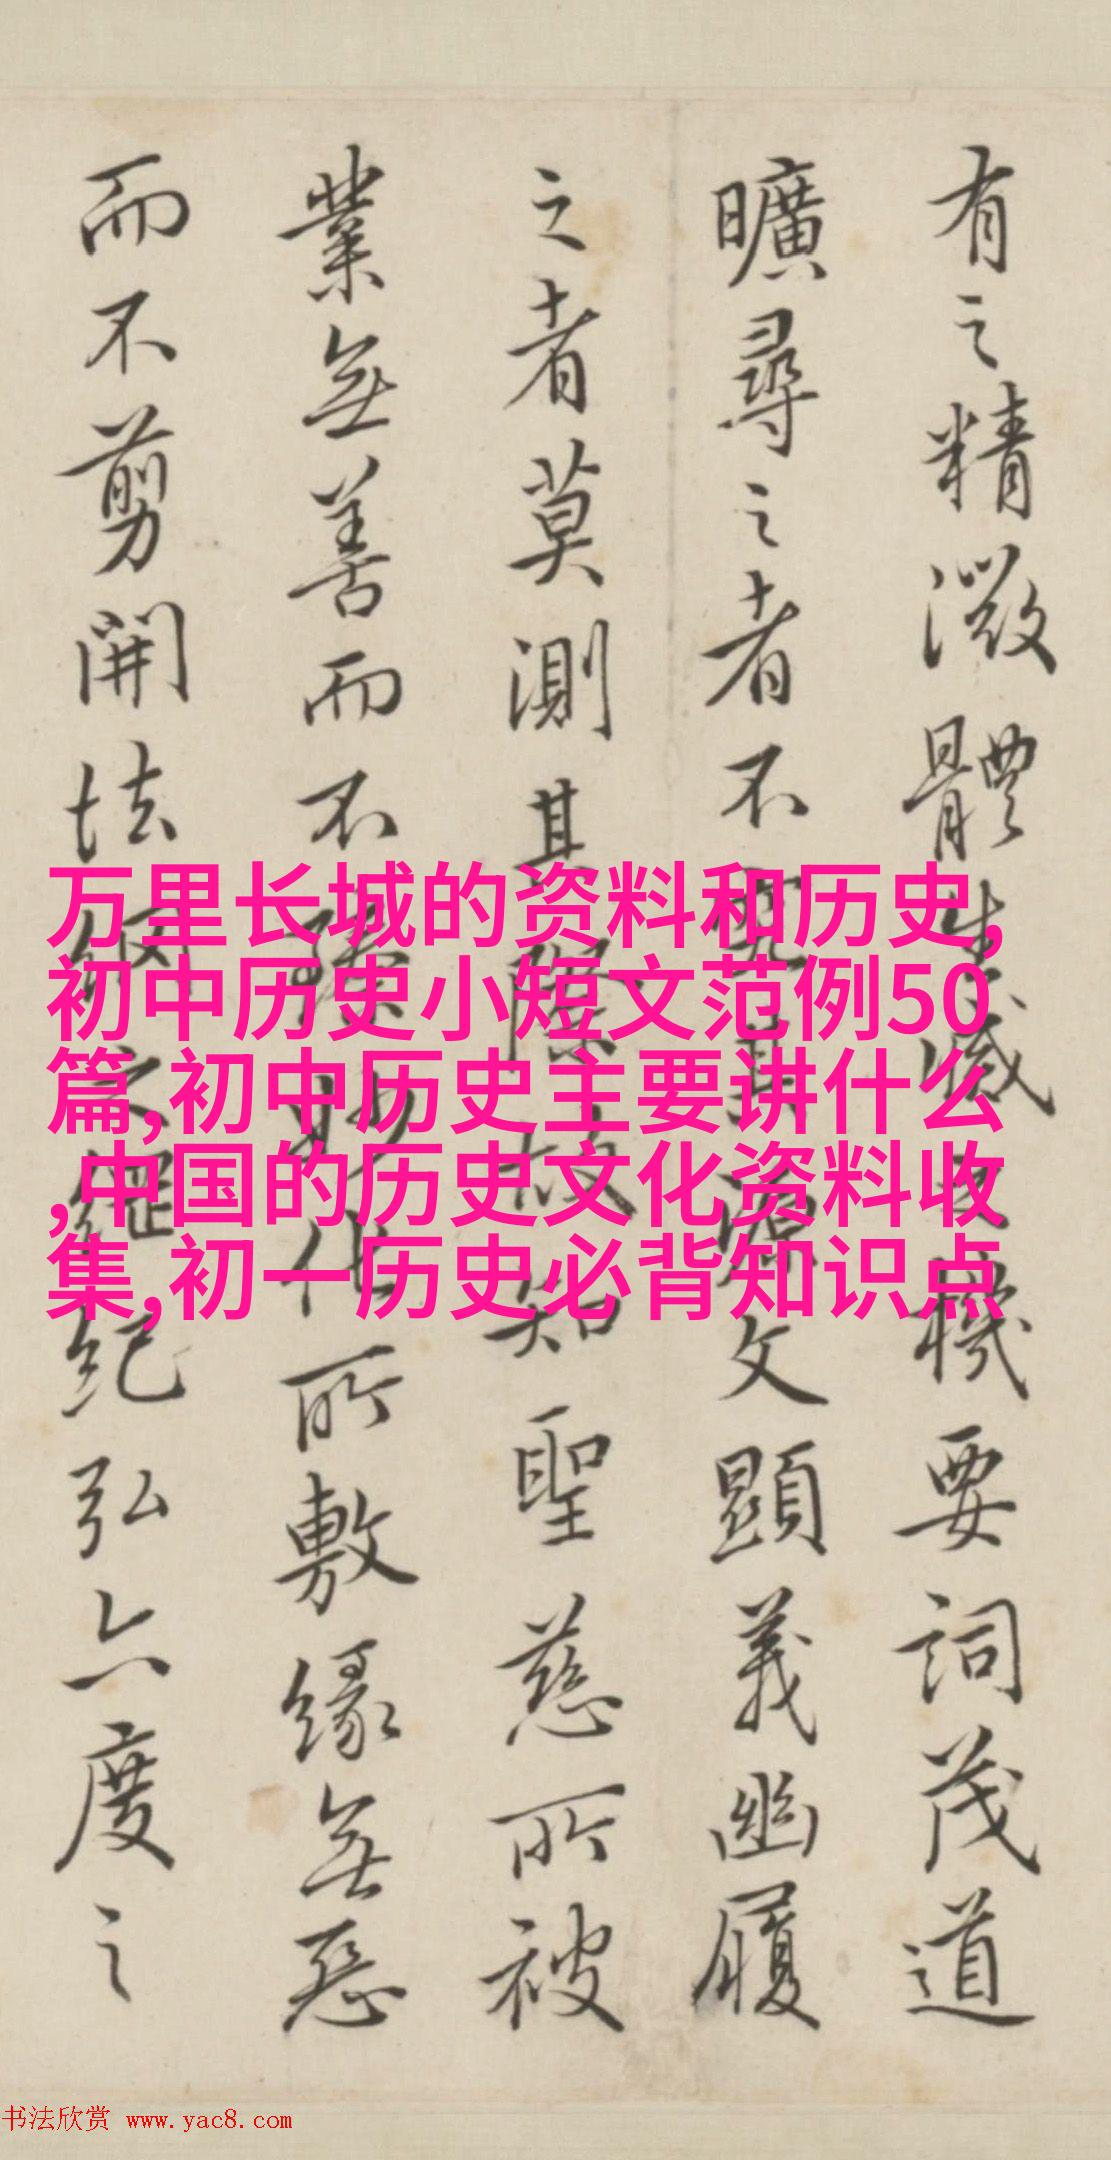 有之精微體生滅之機要詞茂道
曠尋之者不究其源文顯義幽履
之者莫測其際故知聖慈所被
業無善而不臻妙化所敷緣無惡
而不剪開法網之綱紀弘六度之
万里长城的资料和历史,
初中历史小短文范例50
篇,初中历史主要讲什么
,中国的历史文化资料收
集,初一历史必背知识点
书法欣赏 www.yac8.com